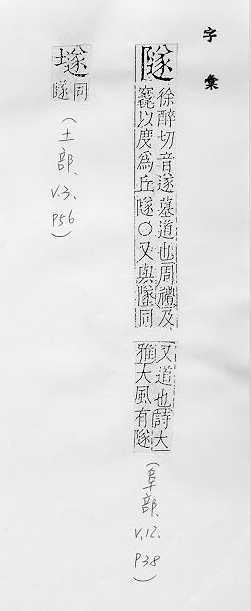 字彙
隧
徐醉切音遂墓道也周禮及
竁以度爲丘隧○又與 同
又道也詩大
雅大風有隧
(阜部、V.12、P38)
㙸
同
隧
(土部、V.3、P56)